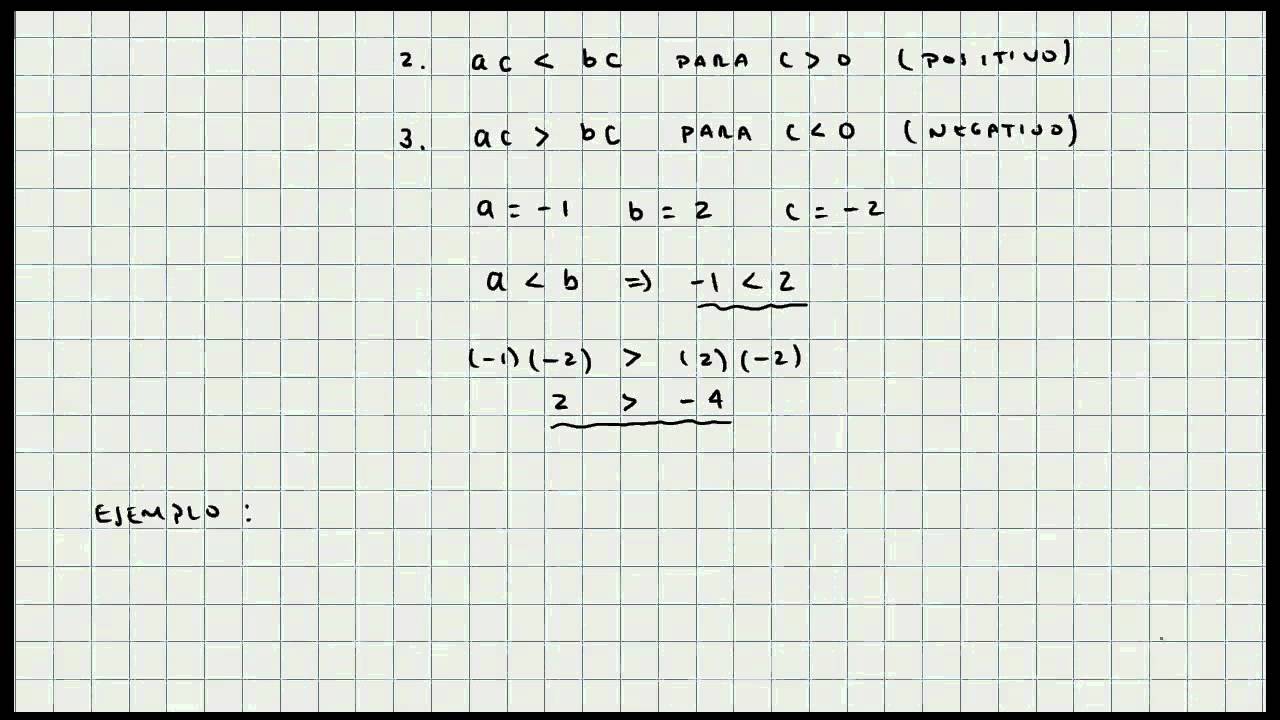 2. ac < bc PARA c > 0 (POSITIVO)
3. ac > bc PARA c < 0 (NEGATIVO)
a = -1 b = 2 c = -2
a < b => -1 < 2
(-1)(-2) > (2)(-2)
2 > -4
EJEMPLO :